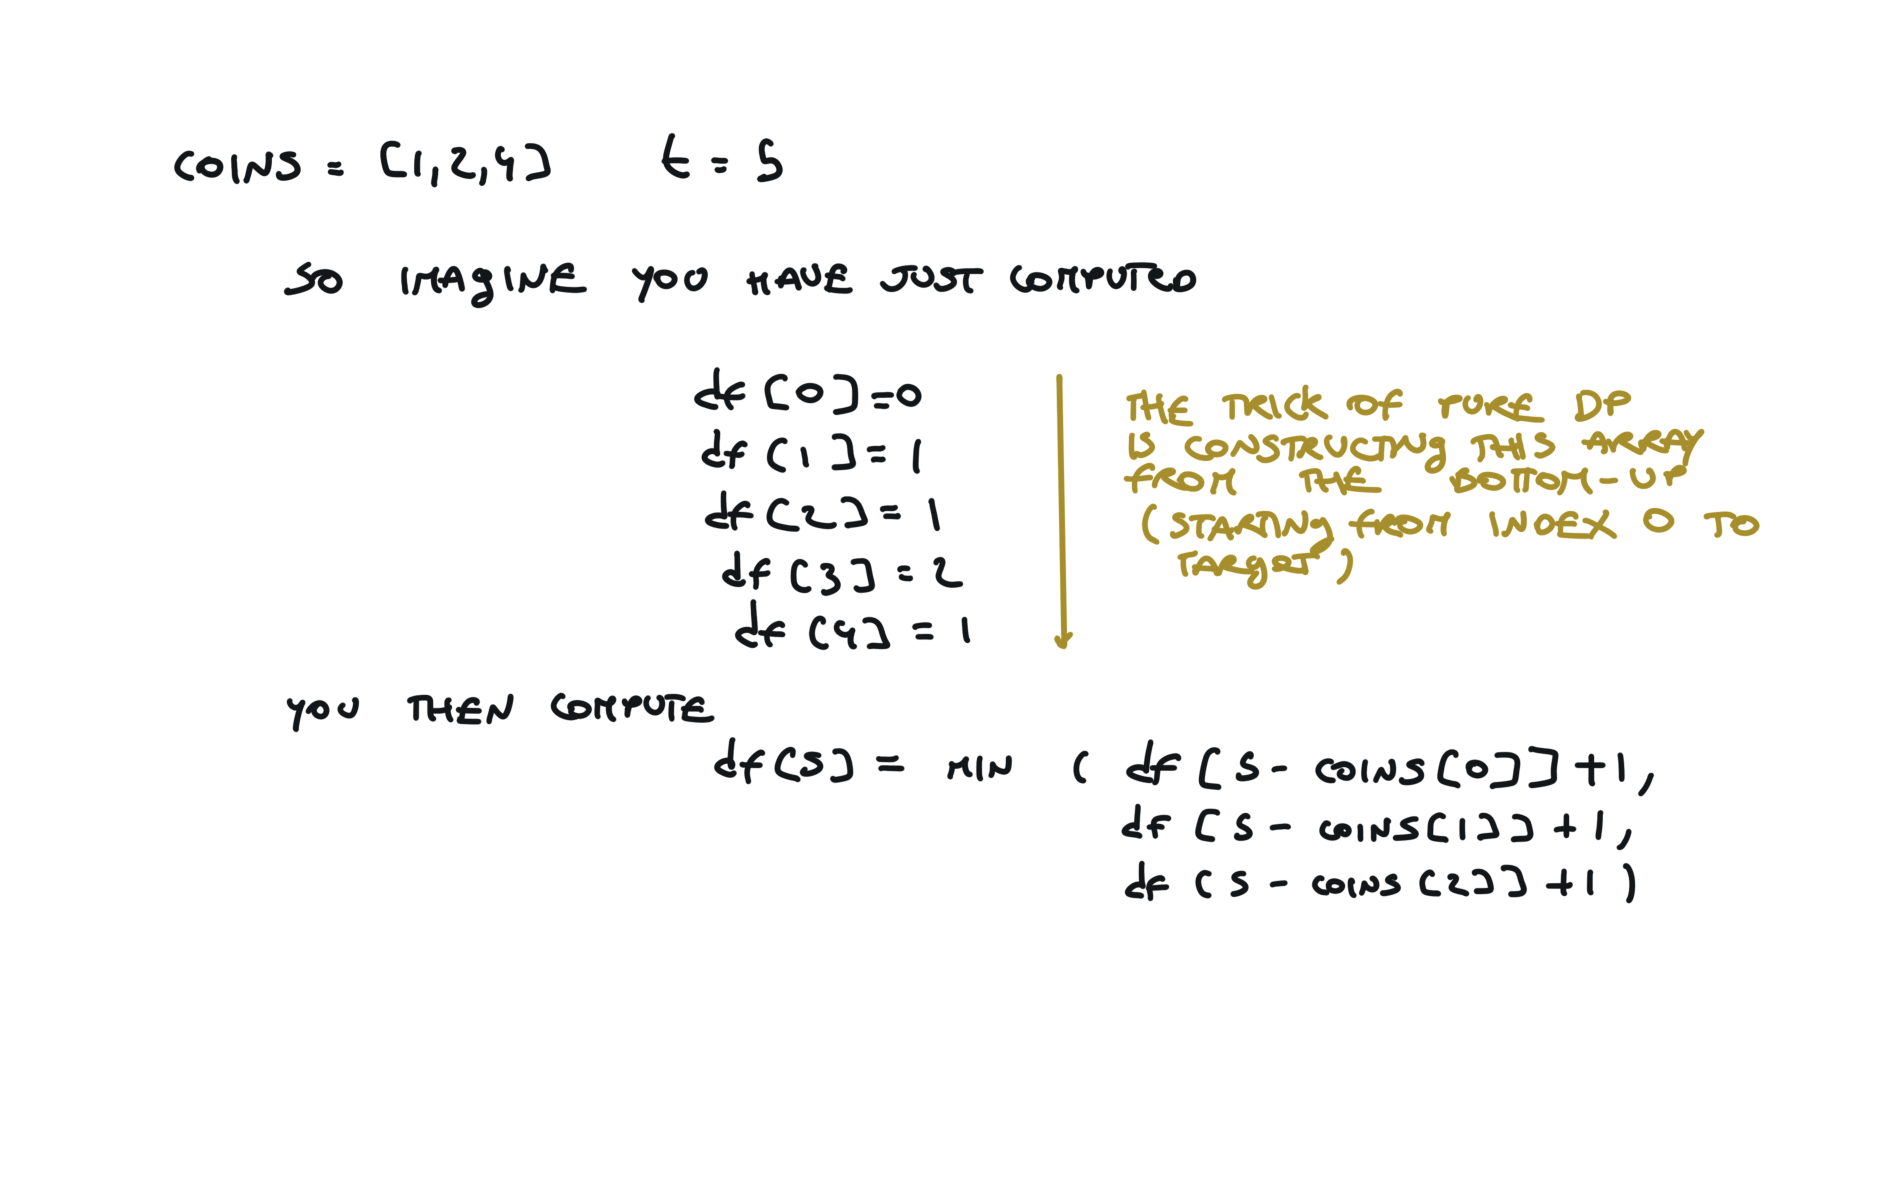 COINS = [1,2,4] t = 5
SO IMAGINE YOU HAVE JUST COMPUTED
df[0]=0
df[1]=1
df[2]=1
df[3]=2
df[4]=1
THE TRICK OF PURE DP
IS CONSTRUCTING THIS ARRAY
FROM THE BOTTOM-UP
(STARTING FROM INDEX 0 TO
TARGET)
YOU THEN COMPUTE
df[5] = MIN ( df[5 - COINS[0]]+1,
df[5 - COINS[1]]+1,
df[5 - COINS[2]]+1)